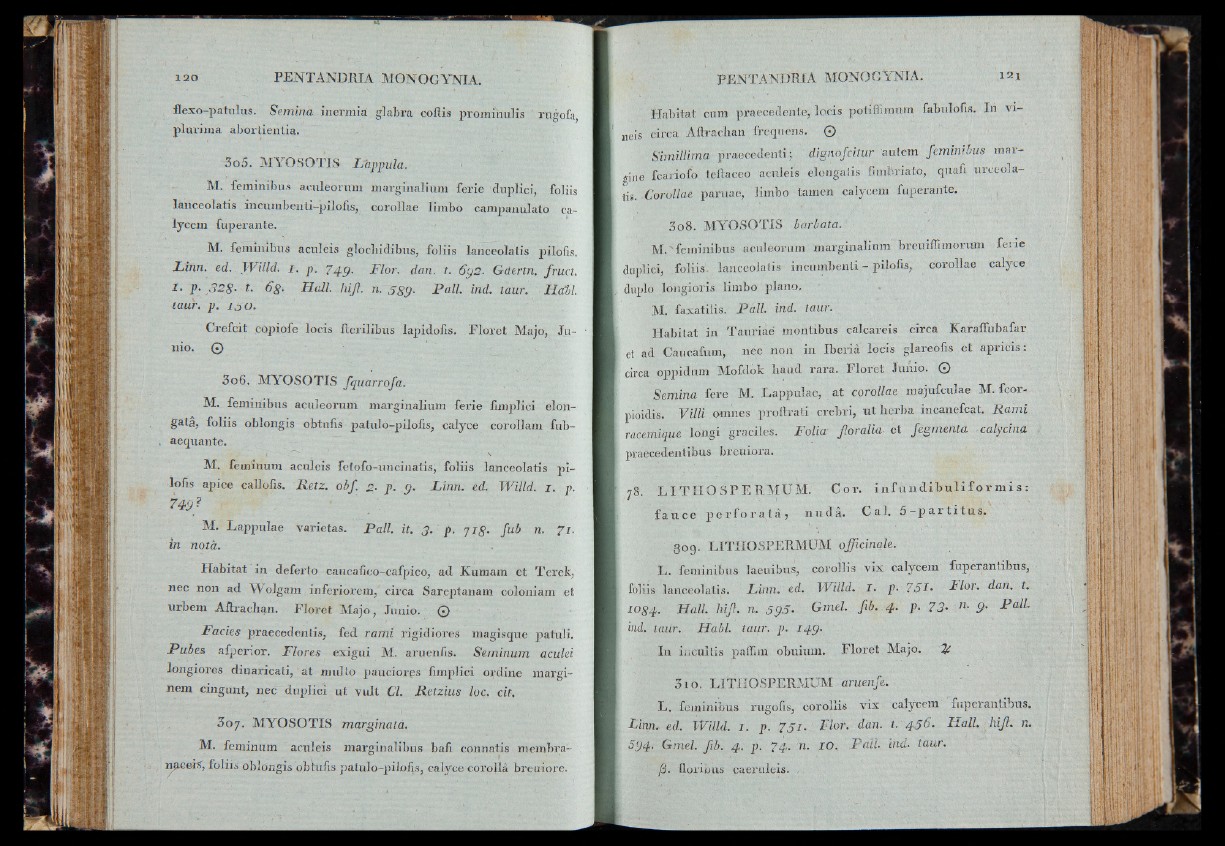 120 PENTANDRIA MONOGYNIA.
flexo-patulus. Semina inermia glabra coſtis prominulis rugoſa,
plurima abortientia.
305. MYOSOTIS Lappula.
M. ſeminibus aculeorum marginalium ſerie duplici, foliis
lanceolatis incumbenti-piloſis, corollae limbo campanulato ca-
lycem ſuperante.
M. ſeminibus aculeis glochidibus, foliis lanceolatis piloſis.
Linn. ed. Willd. 1. p. 749. Flor. dan. t. 692. Gaertn. fruct.
1. p. 328. t. 68. Hall. hiſt. n. 589. Pall. ind. taur. Habl.
taur. p. 150.
Creſcit copioſe locis ſterilibus lapidoſis. Floret Majo, Ju-
nio. ☉
306. MYOSOTIS ſquarroſa.
M. ſeminibus aculeorum marginalium ſerie ſimplici elon-
gatâ, foliis oblongis obtuſis patulo-piloſis, calyce corollam ſub-
aequante.
M. ſeminum aculeis ſetoſo-uncinatis, foliis lanceolatis pi-
loſis apice calloſis. Retz. obſ. 2. p. 9. Linn. ed. Willd. 1. p.
749?
M. Lappulae varietas. Pall. it. 3. p. 718. ſub n. 71.
in notâ.
Habitat in deſerto caucaſico-caſpico, ad Kumam et Terek,
nec non ad Wolgam inferiorem, circa Sareptanam coloniam et
urbem Aſtrachan. Floret Majo, Junio. ☉
Facies praecedentis, ſed rami rigidiores magisque patuli.
Pubes aſperior. Flores exigui M. aruenſis. Seminum aculei
longiores diuaricati, at multo pauciores ſimplici ordine margi-
nem cingunt, nec duplici ut vult Cl. Retzius loc. cit.
307. MYOSOTIS marginata.
M. ſeminum aculeis marginalibus baſi connatis membra-
naceis, foliis oblongis obtuſis patulo-piloſis, calyce corollâ breuiore.
PENTANDRIA MONOGYNIA. 121
Habitat cum praecedente, locis potiſſimum ſabuloſis. In vi-
neis circa Aſtrachan frequens. ☉
Simillima praecedenti; dignoſcitur autem ſeminibus mar-
gine ſcarioſo teſtaceo aculeis elongatis fimbriato, quaſi urceola-
tis. Corollae paruae, limbo tamen calycem ſuperante.
308. MYOSOTIS barbata.
M. ſeminibus aculeorum marginalium breuiſſimorum ſerie
duplici, foliis lanceolatis incumbenti-piloſis, corollae calyce
duplo longioris limbo plano.
M. ſaxatilis. Pall. ind. taur.
Habitat in Tauriae montibus calcareis circa Karaſſubaſar
et ad Caucaſum, nec non in Iberiâ locis glareoſis et apricis:
circa oppidum Mosdok haud rara. Floret Junio. ☉
Semina fere M. Lappulae, at corollae majuſculae M. ſcor-
pioidis. Villi omnes proſtrati crebri, ut herba incaneſcat. Rami
racemique longi graciles. Folia floralia et ſegmenta calycina
praecedentibus breuiora.
78. LITHOSPERMUM. Cor. infundibuliformis:
fauce perforatâ, nudâ. Cal. 5-partitus.
309. LITHOSPERMUM officinale.
L. ſeminibus laeuibus, corollis vix calycem ſuperantibus,
foliis lanceolatis. Linn. ed. Willd. 1. p. 751. Flor. dan. t.
1084. Hall. hiſt. n. 595. Gmel. ſib. 4. p. 73. n. 9. Pall.
ind. taur. Habl. taur. p. 149.
In incultis paſſim obuium. Floret Majo. ♃
310. LITHOSPERMUM aruenſe.
L. ſeminibus rugoſis, corollis vix calycem ſuperantibus.
Linn. ed. Willd. 1. p. 751. Flor. dan. t. 456. Hall. hiſt. n.
594. Gmel. ſib. 4. p. 74. n. 10. Pall. ind. taur.
β. floribus caeruleis.